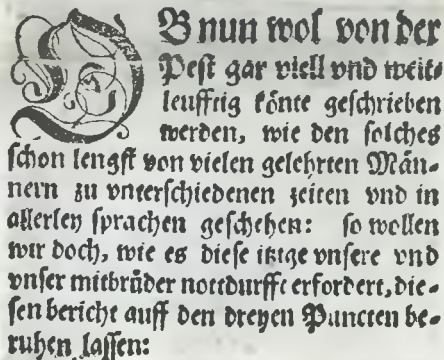 OB nun wol von der
Pest gar viell vnd weit⸗
leufftig könte geschrieben
werden, wie den solches
schon lengst von vielen gelehrten Män⸗
nern zu vnterschiedenen zeiten vnd in
allerley sprachen geschehen: so wollen
wir doch, wie es diese itzige vnsere vnd
vnser mitbrüder notturfft erfordert, die⸗
sen bericht auff den dreyen Puncten be⸗
ruhen lassen: